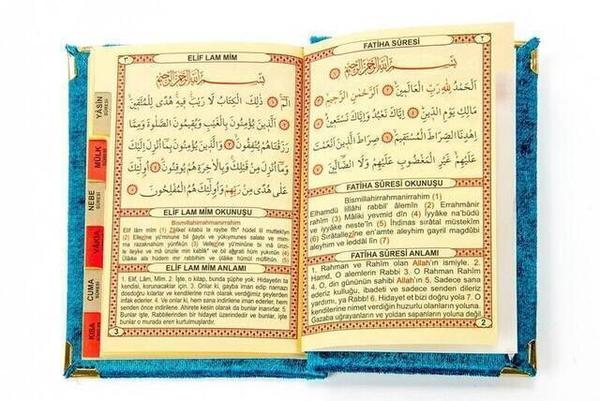 ٢
FATİHA SÛRESİ
بِسْمِ اللّٰهِ الرَّحْمٰنِ الرَّحِيمِ
اَلْحَمْدُ لِلّٰهِ رَبِّ الْعَالَمِينَ اَلرَّحْمٰنِ الرَّحِيمِ
مَالِكِ يَوْمِ الدِّينِ اِيَّاكَ نَعْبُدُ وَاِيَّاكَ نَسْتَعِينُ
اِهْدِنَا الصِّرَاطَ الْمُسْتَقِيمَ صِرَاطَ الَّذِينَ اَنْعَمْتَ
عَلَيْهِمْ غَيْرِ الْمَغْضُوبِ عَلَيْهِمْ وَلَا الضَّالِّينَ
FATİHA SÛRESİ OKUNUŞU
Bismillahirrahmanirrahim (1)
Elhamdü lillâhi rabbil' âlemîn (2) Errahmânir
rahîm (3) Mâliki yevmid dîn (4) İyyâke na'büdü
ve iyyâke neste'în (5) İhdinas sırâtal müstekîm
(6) Sırâtallezîne en'amte aleyhim gayril mağdûbi
aleyhim ve leddâl lîn (7)
FATİHA SÛRESİ ANLAMI
1. Rahman ve Rahîm olan Allah'ın ismiyle. 2.
Hamd, O alemlerin Rabbi 3. O Rahman Rahîm
4. O, din gününün sahibi Allah'ın 5. Sadece sana
ederiz kulluğu, ibadeti ve sadece senden dileriz
yardımı, ya Rabb! 6. Hidayet et bizi doğru yola 7. O
kendilerine nimet verdiğin huzurlu olanların yoluna.
Gazaba uğrayanların ve yoldan sapanların yoluna değil.
2
٣
ELİF LAM MİM
بِسْمِ اللّٰهِ الرَّحْمٰنِ الرَّحِيمِ
الٓمٓ ذٰلِكَ الْكِتَابُ لَا رَيْبَ فِيهِ هُدًى لِلْمُتَّقِينَ
اَلَّذِينَ يُؤْمِنُونَ بِالْغَيْبِ وَيُقِيمُونَ الصَّلٰوةَ وَمِمَّا
رَزَقْنَاهُمْ يُنْفِقُونَ وَالَّذِينَ يُؤْمِنُونَ بِمَٓا اُنْزِلَ اِلَيْكَ
وَمَٓا اُنْزِلَ مِنْ قَبْلِكَ وَبِالْاٰخِرَةِ هُمْ يُوقِنُونَ اُولٰٓئِكَ
عَلٰى هُدًى مِنْ رَبِّهِمْ وَاُولٰٓئِكَ هُمُ الْمُفْلِحُونَ
ELİF LAM MİM OKUNUŞU
Bismillahirrahmanirrahim
Elif lâm mîm (1) Zâlikel kitâbü la raybe fîh* hüdel lil müttekîyn
(2) Ellezîne yü'minune bil ğaybi ve yükıymunes salate ve mim-
ma razaknahüm yünfikûn (3) Vellezîne yü'minûne bi mâ ünzi-
le ileyke ve mâ ünzile min kablik* ve bil ağırati hüm yukınun (4)
Ülâike ala hüdem mir rabbihim ve ülâike hümül müflihûn (5)
ELİF LAM MİM ANLAMI
1. Elif, Lâm, Mîm. 2. İşte, o kitap, bunda şüphe yok. Hidayetin ta
kendisi, korunacaklar için. 3. Onlar ki, gayba iman edip namazı
dosdoğru kılarlar ve kendilerine rızık olarak verdiğimiz şeylerden
infak ederler. 4. Ve onlar ki, hem sana indirilene iman ederler, hem
senden önce indirilene Ahirete kesin olarak da bunlar inanırlar. 5.
Bunlar işte, Rabbilerinden bir hidayet üzerindedir ve bunlar, işte
bunlar o murada eren kurtulmuşlardır.
3
YÂSİN
SÛRESİ
MÜLK
SÛRESİ
NEBE
SÛRESİ
VAKIA
CUMA
SÛRESİ
KISA